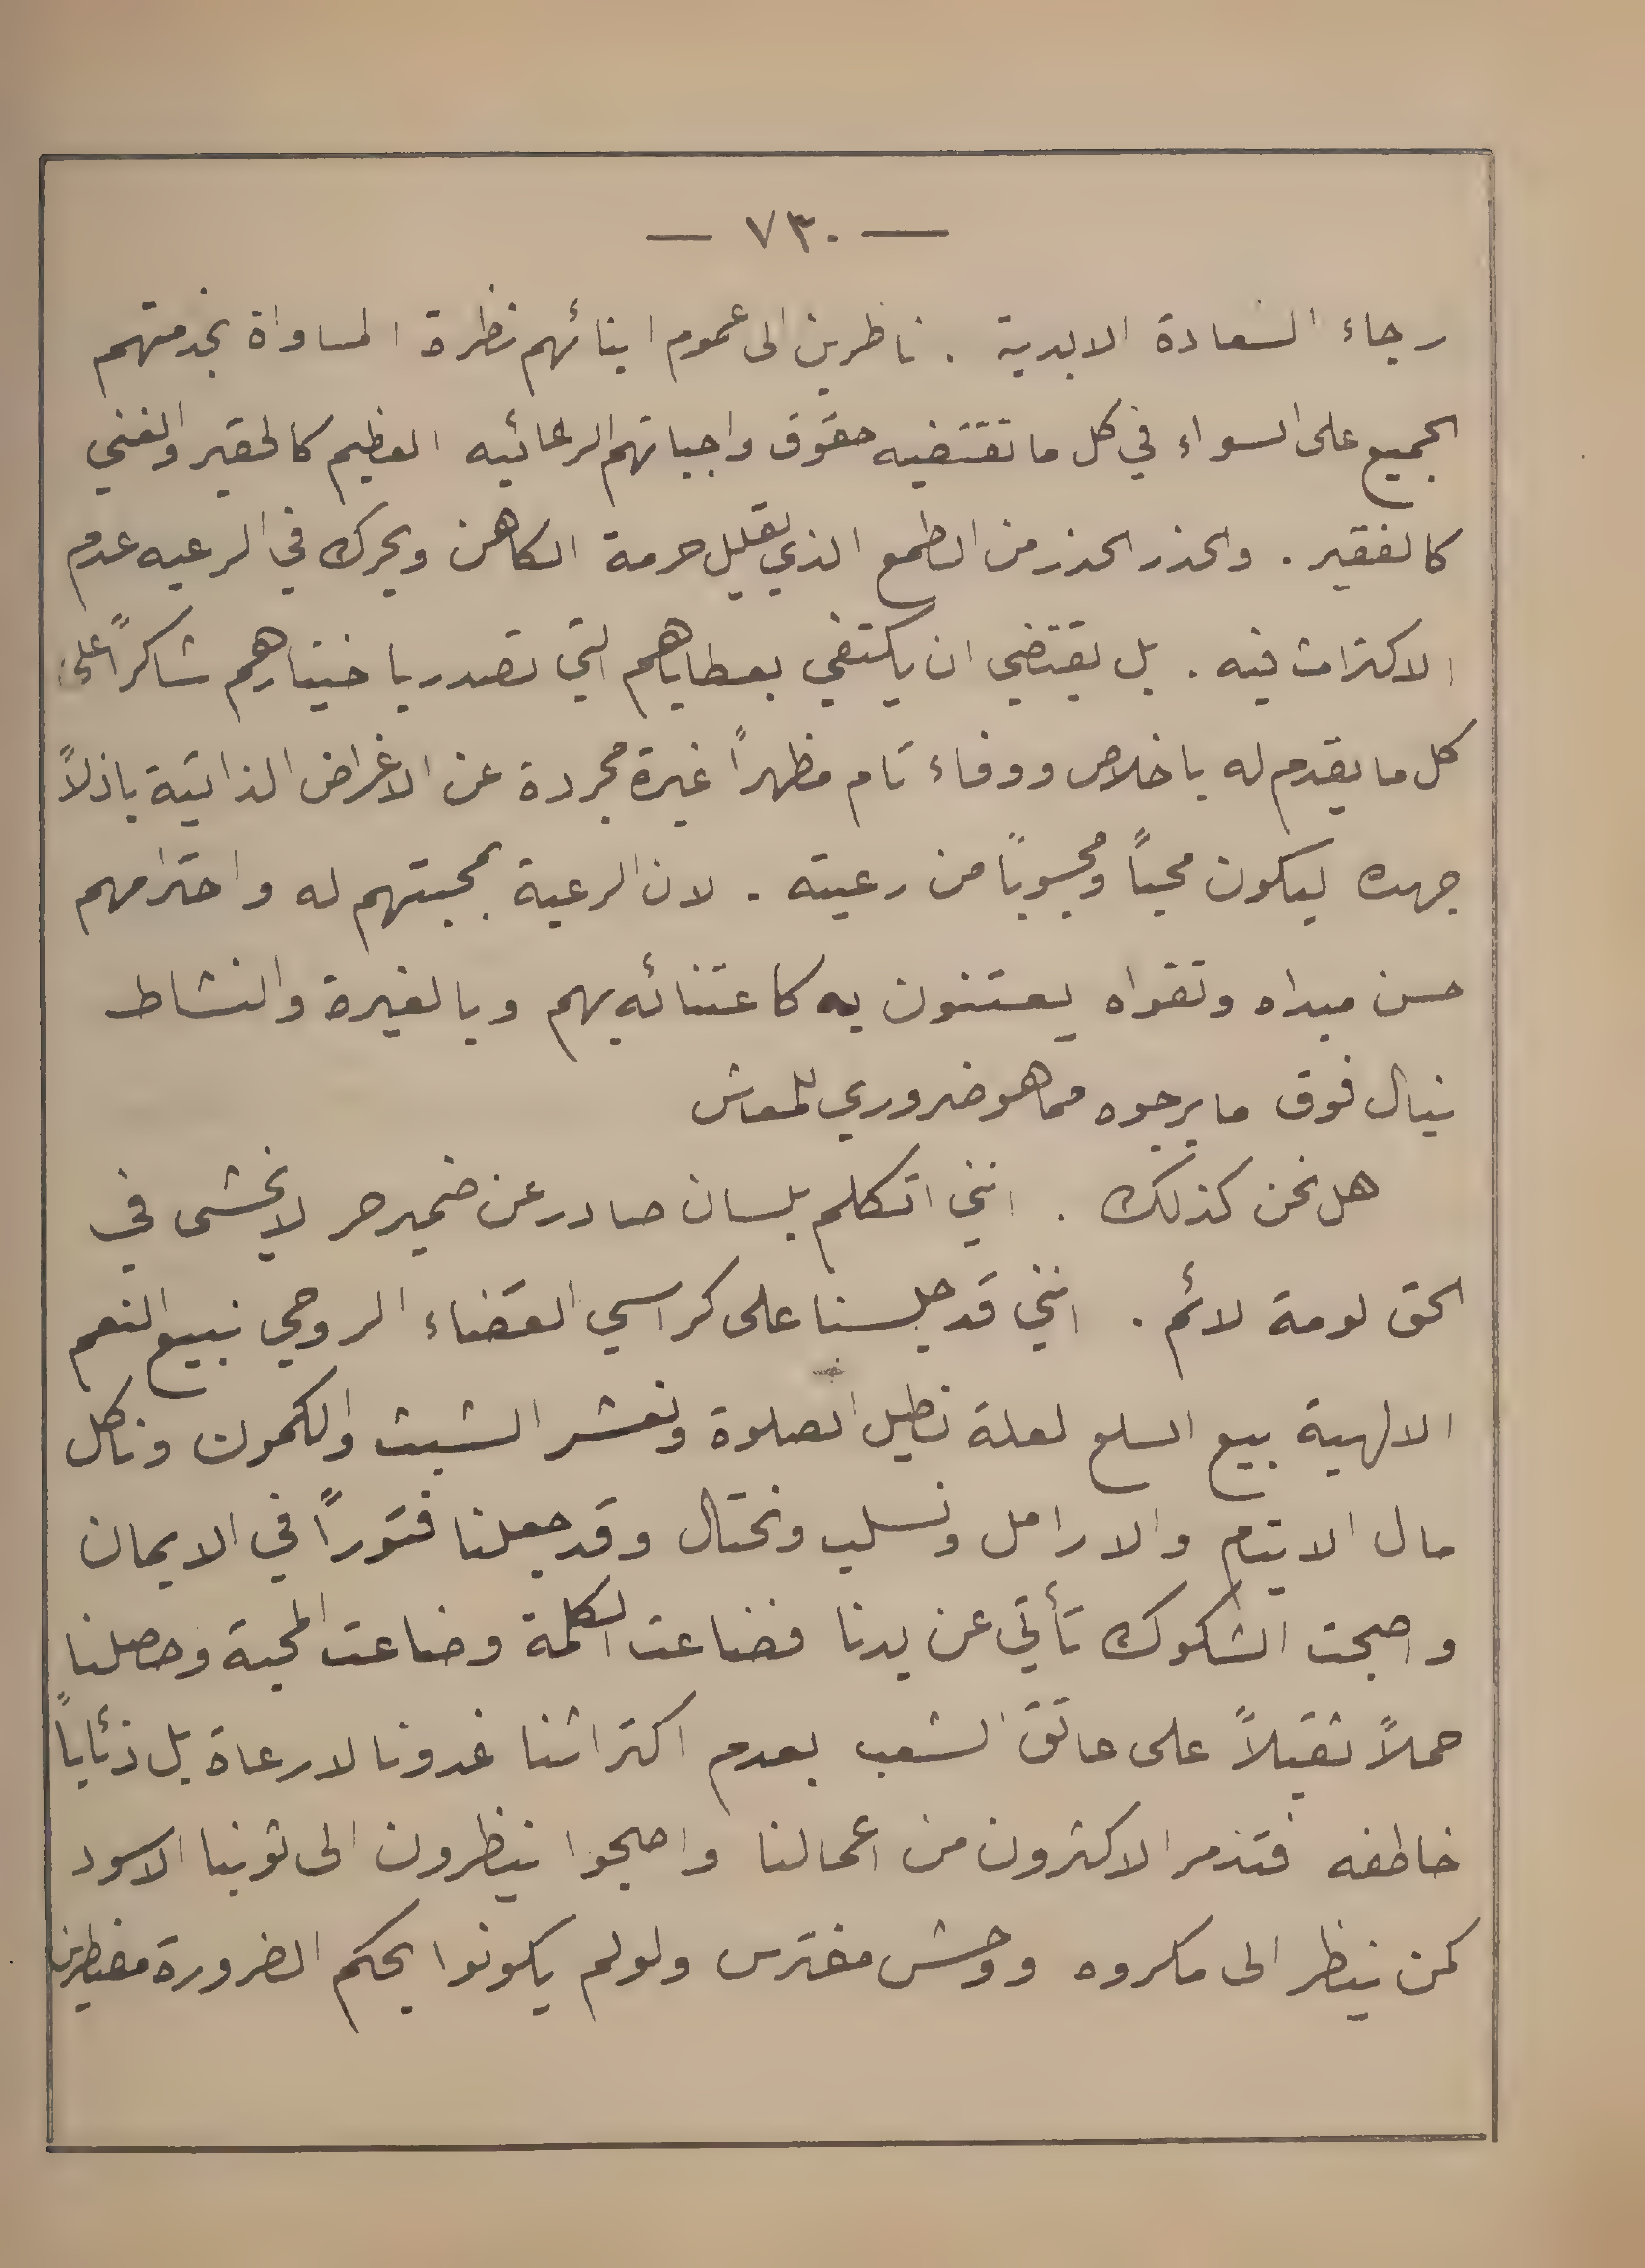 — ٧٣٠ —
رجاء السعادة الابدية . ناظرين الى عموم ابنائهم نظرة المساواة بخدمتهم
الجميع على السواء في كل ما تقتضيه حقوق واجباتهم الرعائيه العظيم كالحقير والغني
كالفقير . والحذر الحذر من الطمع الذي يقليل حرمة الكاهن ويحرك في الرعيه عدم
الاكتراث فيه . بل يقتضي ان يكتفي بعطاياهم التي تصدر باختيارهم شاكراً على
كل ما يقدم له باخلاص ووفاء تام مظهراً غيرة مجردة عن الاغراض الذاتية باذلاً
جهده ليكون محباً ومحبوباً من رعيته . لان الرعية بمحبتهم له واحترامهم
حسن مبداه وتقواه يعتنون به كاعتنائه بهم وبالغيرة والنشاط
ينال فوق ما يرجوه مما هو ضروري للمعاش
هل نحن كذلك . انني اتكلم بلسان صادر عن ضمير حر لا يخشى في
الحق لومة لائم . انني قد جلسنا على كراسي القضاء الروحي نبيع النعم
الالهية بيع السلع لعلة نطيل الصلوة ونعشر الشبث والكمون وناكل
مال الايتم والارامل ونسلب ونحتال وقد جعلنا فتوراً في الايمان
واصبحت الشكوك تأتي عن يدنا فضاعت الكلمة وضاعت المحبة وحصلنا
حملاً ثقيلاً على عاتق الشعب بعدم اكتراثنا غدونا لا رعاة بل ذئاباً
خاطفه فتذمر الاكثرون من اعمالنا واصبحوا ينظرون الى ثوبنا الاسود
كمن ينظر الى مكروه ووحش مفترس ولو لم يكونوا بحكم الضرورة مضطرين